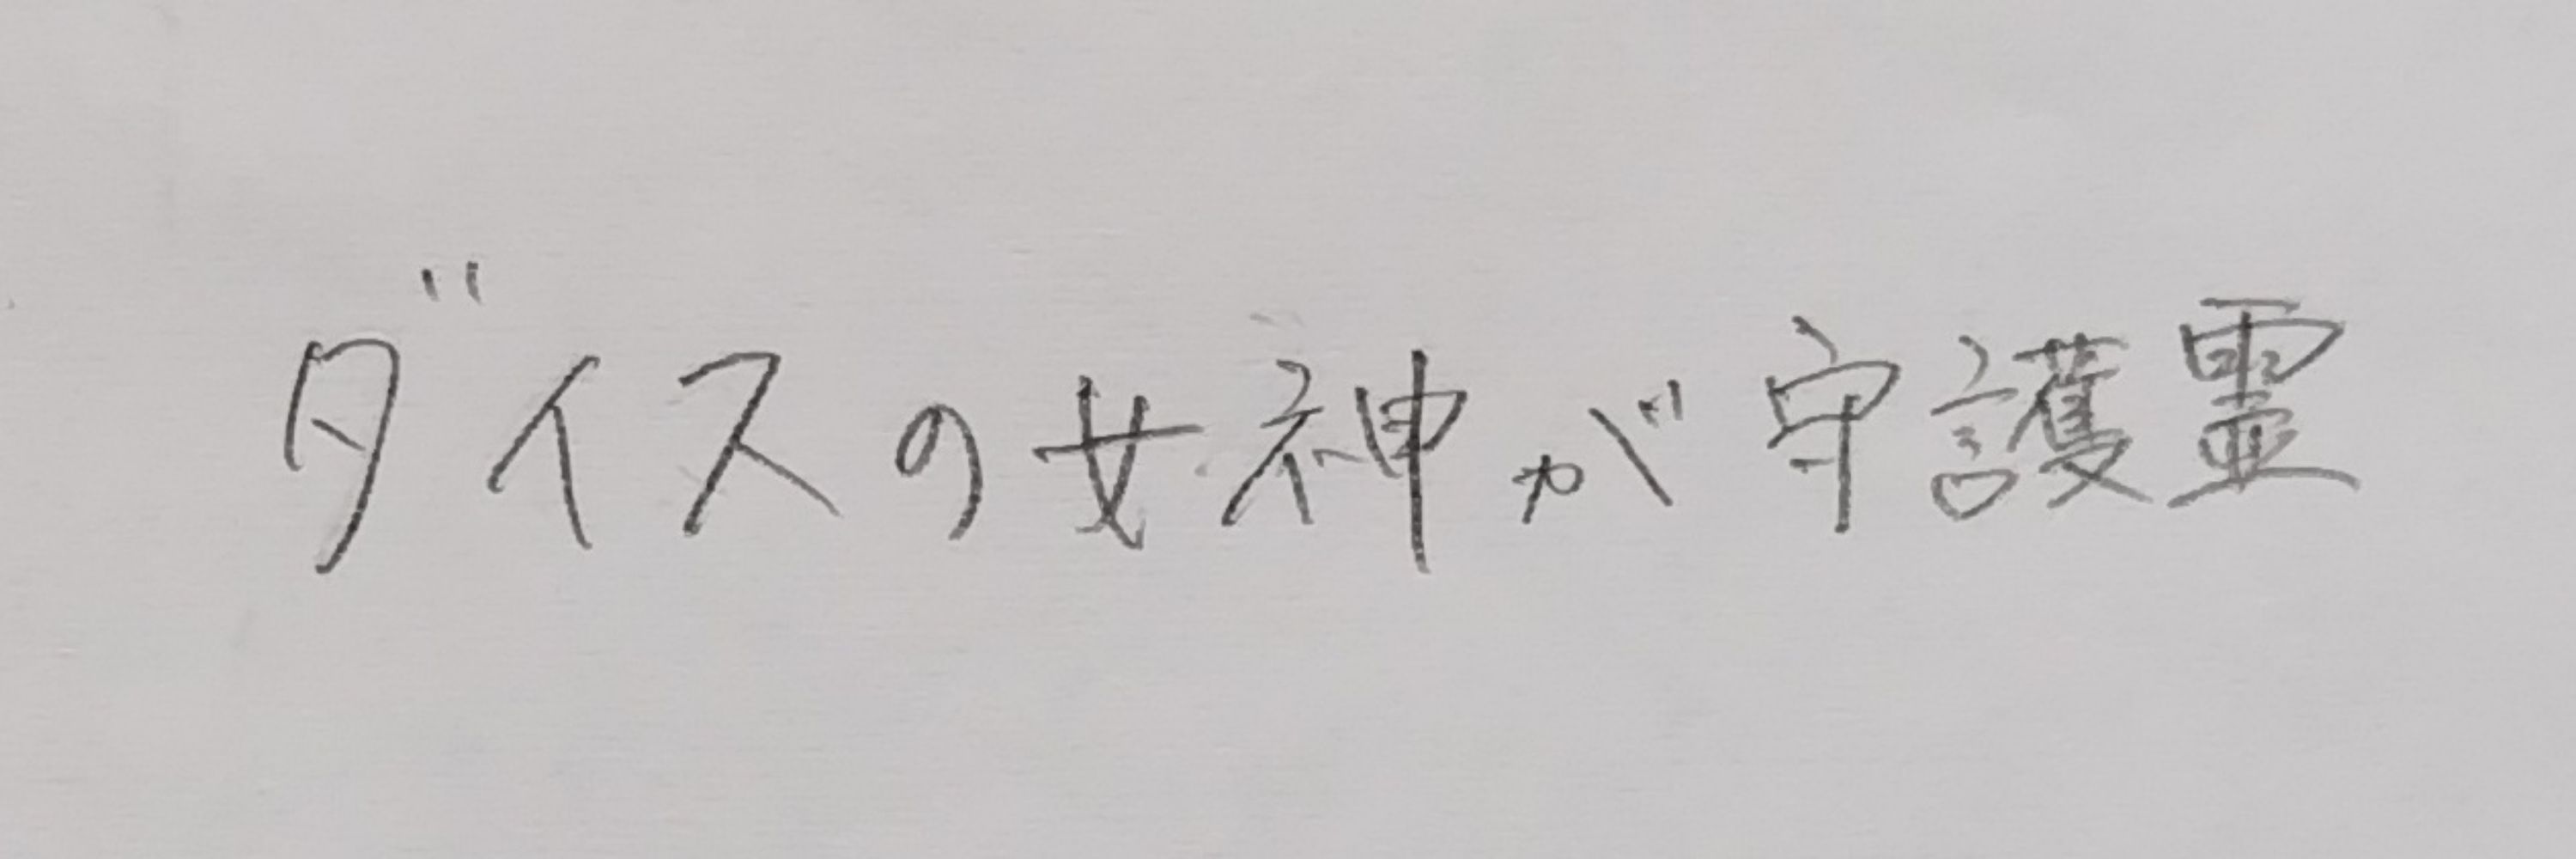 ダイスの女神が守護霊